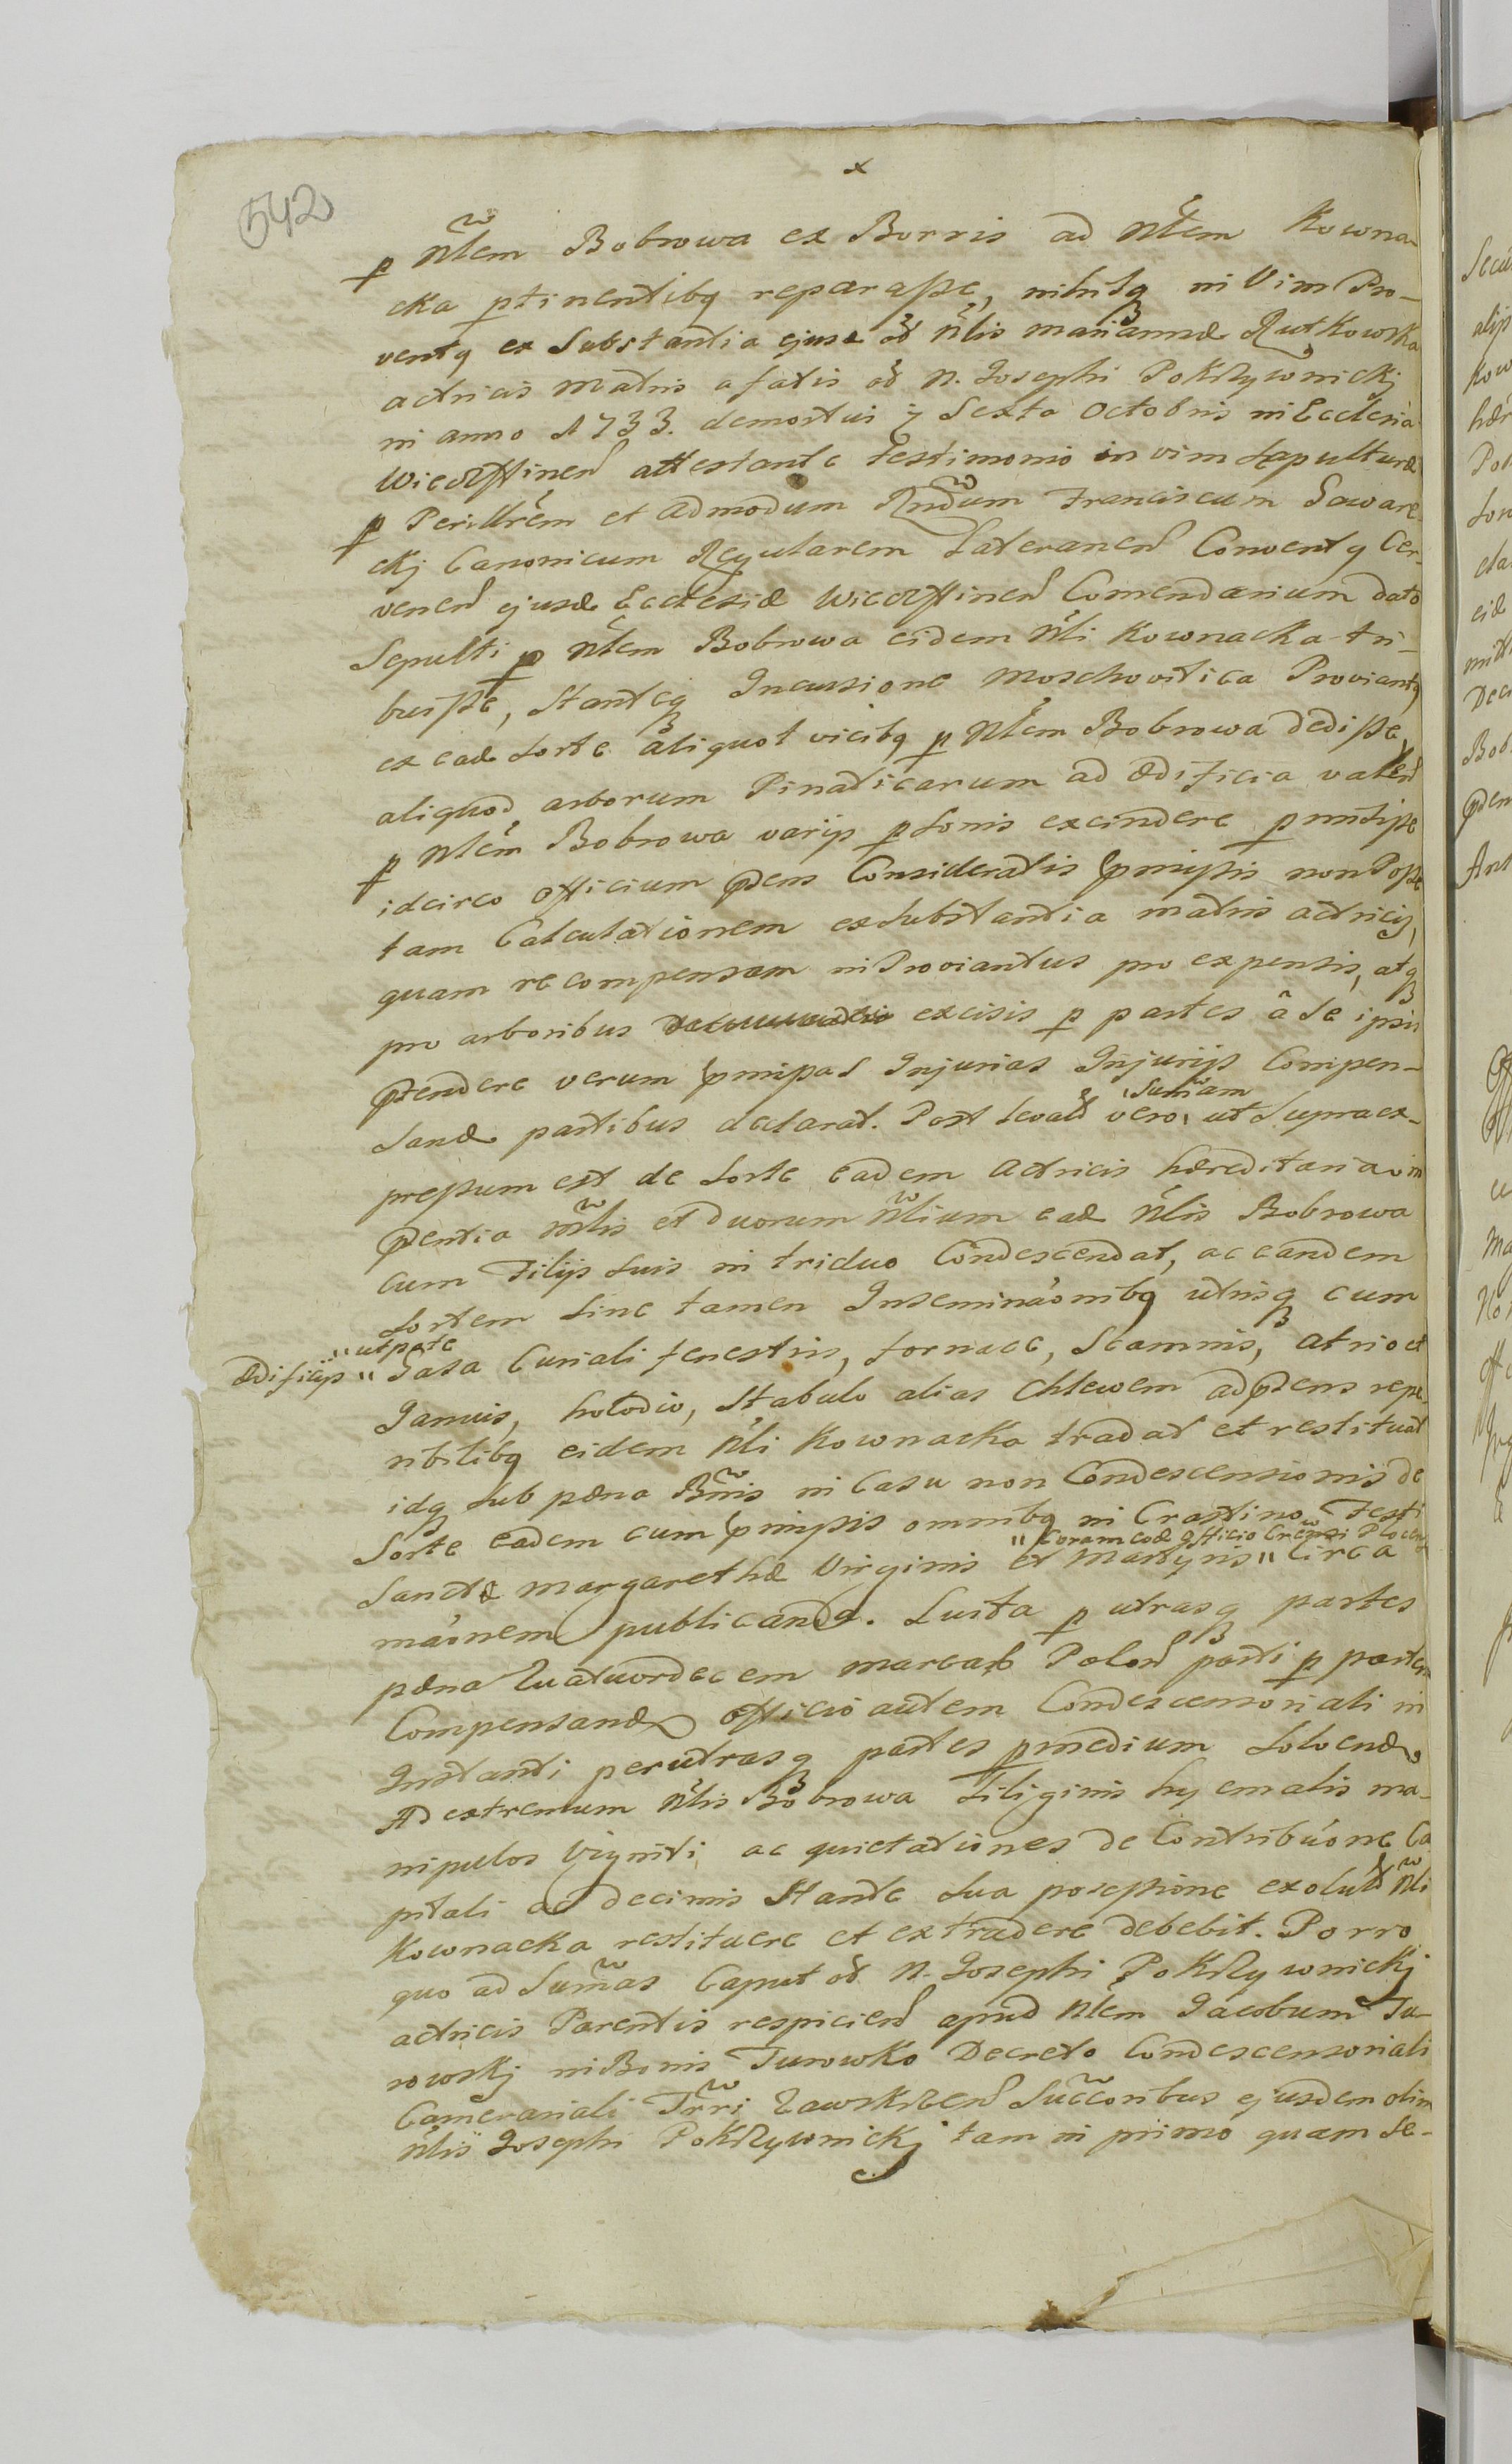 x
542
p Nlem Bobrowa ex Borris ad Nlem Kowna-
cka ptinentibq reparasse, nihilq in Vim Pro-
ventq ex Substantia ejusd od Nlis Mariannæ Rutkowska
actricis Matris a fatis od N. Josephi Pokrzywnickj
in anno 1733. demortui et Sexta Octobris in Ecclesia
attestante testimonio in vim Sepulturæ
p Perillrem et admodum Rndum Franciscum Saware-
ckj Canonicum Regularem Lateranen Conventq Cer-
venen ejusd Ecclesiæ Comendarium dato
Sepulti p Nlem Bobrowa eidem Nli Kownacka tri-
buisse, Stanteq Incursione Moschovitica Proviantq
ex ead Sorte aliquot vicibq p Nlem Bobrowa dedisse,
aliquod arborum Pinaticarum ad ædificia valen
p Nlem Bobrowa varijs psonis excindere pmisisse
idcirco officium pdens Consideratis pmissis non Posse
tam Calculationem ex Substantia matris actricis,
quam recompensam in Proviantus pro expensis, atq
pro arboribus excisis p partes â Se ipsis
ptendere verum pmissas Injurias Injurijs Compen-
sand partibus declarat. Post levatã vero, Sumam ut Supra ex-
pressum est de Sorte eadem Actricis hæreditaria in
pdentia mlis et duorum Nlium ead Nlis Bobrowa
cum Filijs Suis in triduo Condescendat, ac eandem
Sortem Sine tamen Inseminaonibq utrisq cum
ædificijs " utpote
" Casa Curiali fenestris, fornace, Scamnis, atrio et
Januis, holodio, Stabulo alias Chlewem ad pdens repe
ribilibq eidem Nli Kownacka tradat et restituat
idq Sub pæna Bnnis in Casu non Condescensionis de
Sorte eadem cum pmissis omnibq in Crastino Festi
" Coram eod Officio Crensi Plocen
Sanctæ Margarethæ Virginis et Martyris " Circa
maonem publicanda. Luita p utrasq partes
pæna Quatuordecem marcar Polon parti p partem
Compensand officio autem Condescensoriali in
Instanti per utrasq partes p medium Solvend
Ad extremum Nlis Bobrowa Siliginis hyemalis ma-
nipulos Viginti ac quietationes de Contribuone Ca
pitali ac decimis Stante Sua possessione exolut Nli
Kownacka restituere et extradere debebit. Porro
quo ad Sumas Caput od N. Josephi Pokrzywnickj
actricis Parentis respicien apud Nlem Jacobum Tu-
rowskj in Bonis Turowko Decreto Condescensoriali
Camerariali Trri Zawskrzen Succoribus ejusdem olim
Nlis Josephi Pokrzywnickj tam in primo quam Se-